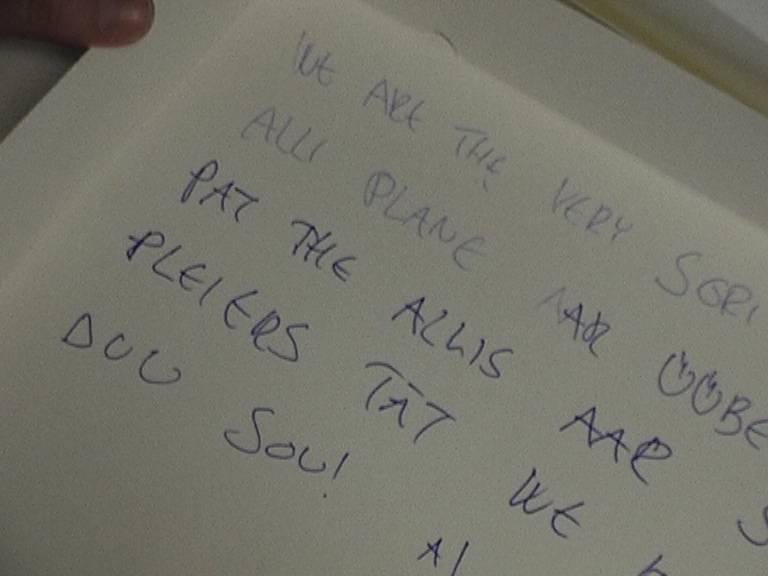 WE ARE THE VERY SORI
ALLI PLANE AAR ÖÖBE
PAT THE ALLIS AAR S
PLEIERS TAT WE
DUU SOU!